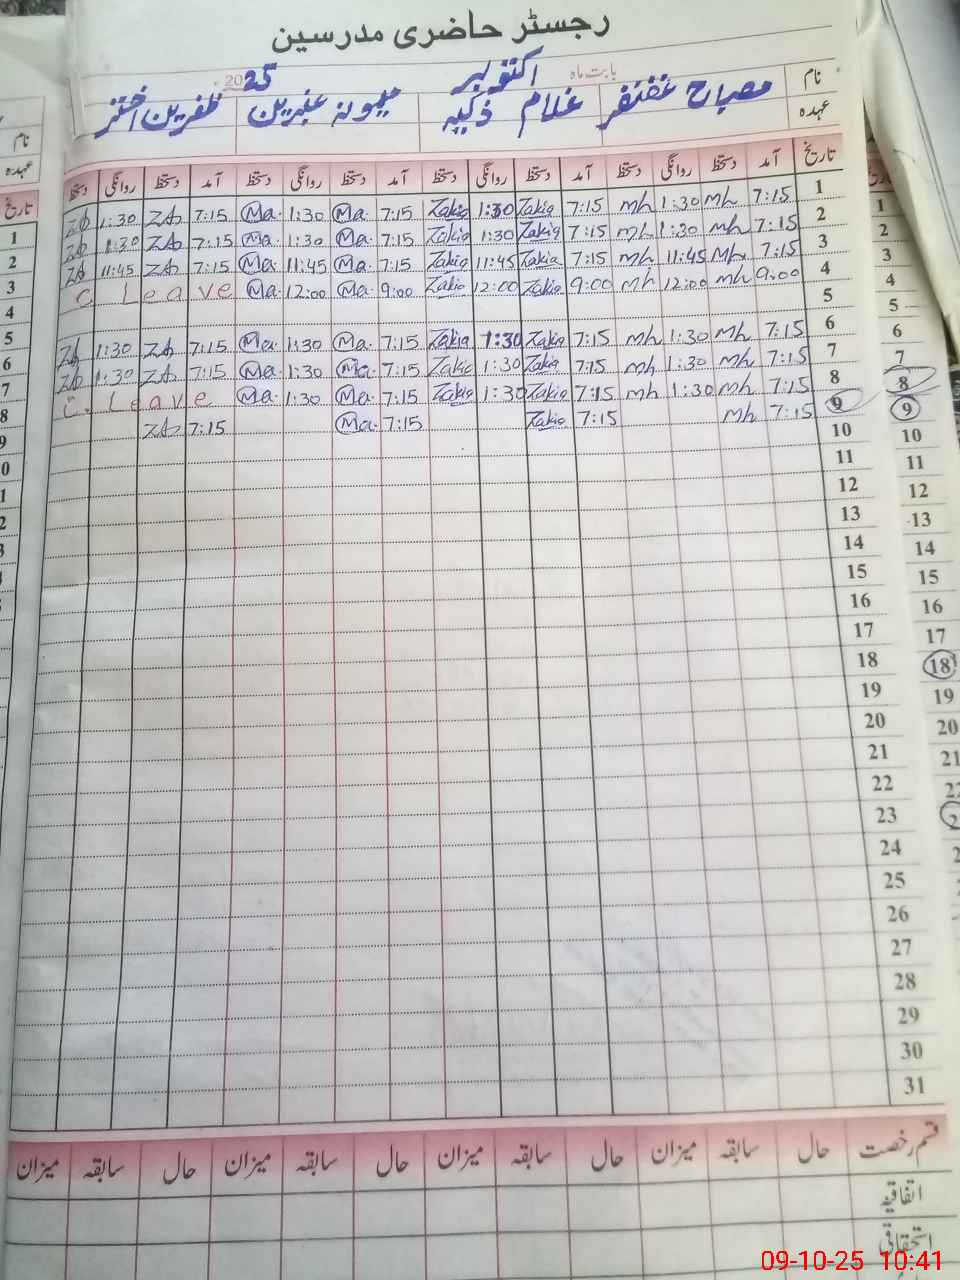 رجسٹر حاضری مدرسین
بابت ماہ اکتوبر 2025
نام مصباح غضنفر غلام ذکیہ میمونہ عنبرین ظفرین اختر
عہدہ
تاریخ آمد دستخط روانگی دستخط آمد دستخط روانگی دستخط آمد دستخط روانگی دستخط آمد دستخط روانگی دستخط
1 7:15 mh 1:30 mh 7:15 Zakia 1:30 Zakia 7:15 Ma. 1:30 Ma. 7:15 ZA 1:30 ZA
2 7:15 mh 1:30 mh 7:15 Zakia 1:30 Zakia 7:15 Ma. 1:30 Ma. 7:15 ZA 1:30 ZA
3 7:15 Mh 11:45 mh 7:15 Zakia 11:45 Zakia 7:15 Ma. 11:45 Ma. 7:15 ZA 11:45 ZA
4 9:00 mh 12:00 mh 9:00 Zakia 12:00 Zakia 9:00 Ma. 12:00 Ma. C. Leave
5
6 7:15 Mh 1:30 mh 7:15 Zakia 1:30 Zakia 7:15 Ma. 1:30 Ma. 7:15 ZA 1:30 ZA
7 7:15 Mh 1:30 mh 7:15 Zakia 1:30 Zakia 7:15 Ma. 1:30 Ma. 7:15 ZA 1:30 ZA
8 7:15 Mh 1:30 mh 7:15 Zakia 1:30 Zakia 7:15 Ma. 1:30 Ma. C. Leave
9 7:15 Mh 7:15 Zakia 7:15 Ma. 7:15 ZA
10
11
12
13
14
15
16
17
18
19
20
21
22
23
24
25
26
27
28
29
30
31
قسم رخصت حال سابقہ میزان حال سابقہ میزان حال سابقہ میزان حال سابقہ میزان
اتفاقیہ
استحقاقی
09-10-25 10:41